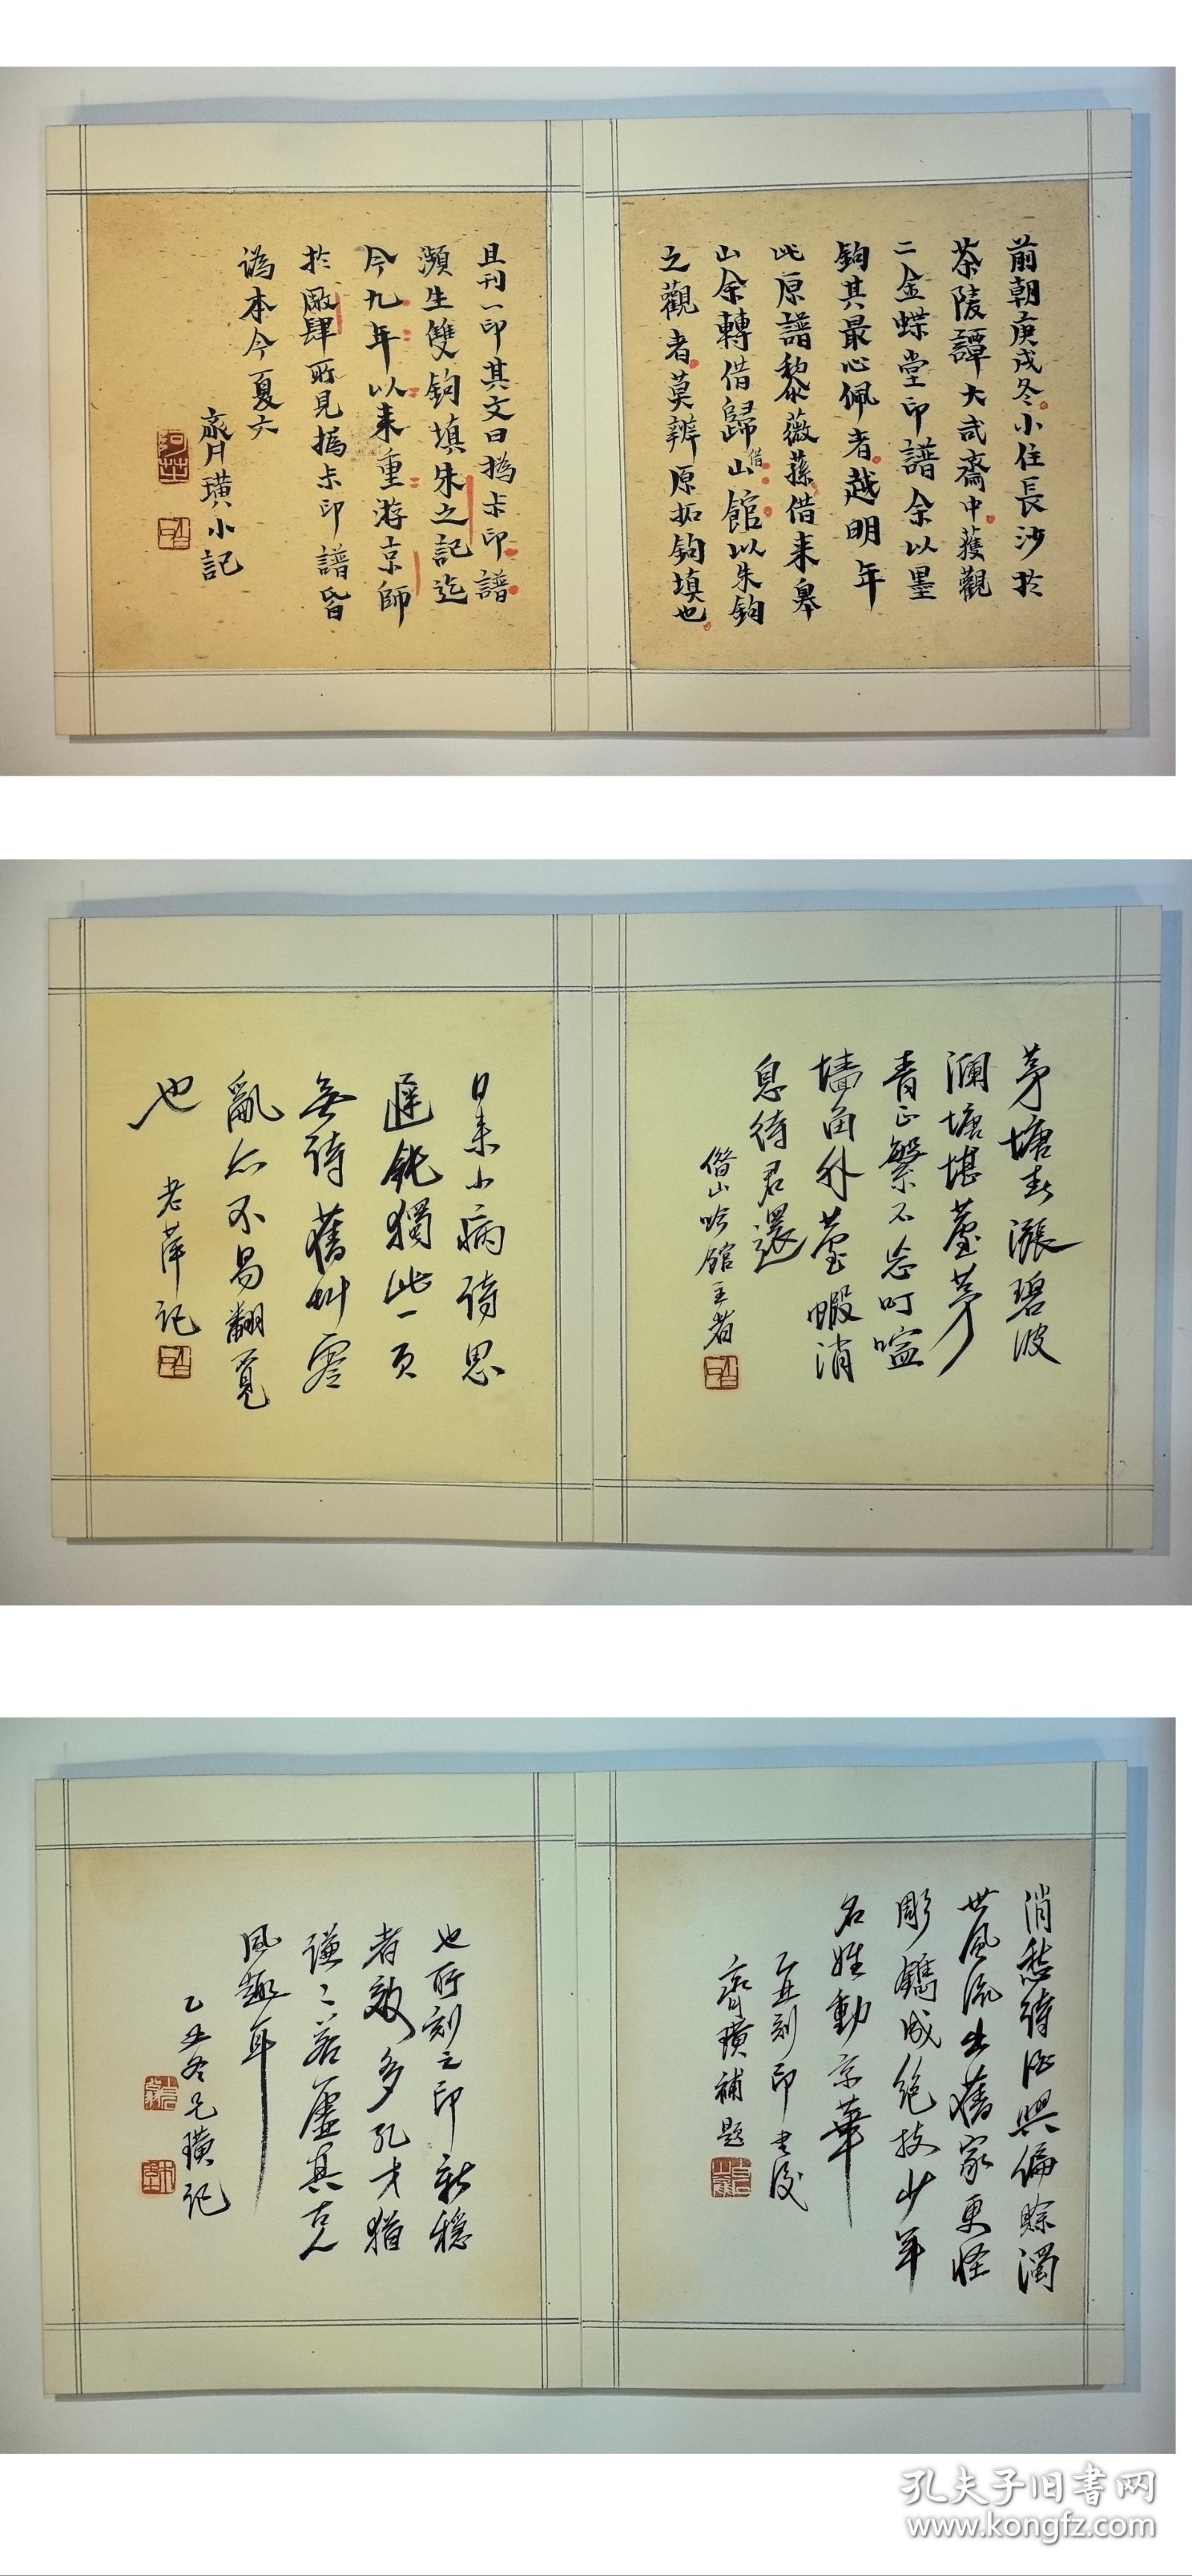 前朝庚戌冬小住長沙於
茶陵譚大武齋中獲觀
二金蝶堂印譜余以墨
鉤其最心佩者越明年
此原譜黎薇蓀借來皋
山余轉借歸借山館以朱鉤
之觀者莫辨原拓鉤填也
且刊一印其文曰撝叔印譜
瀕生雙鉤填朱之記迄
今九年以來重游京師
於廠肆所見撝叔印譜皆
偽本今夏六
齊璜小記
茅塘春漲碧波
瀾塘堪薹芽
青正繁不忘叮嚀
墻角外薹蝦消
息待君還
借山吟館主者
日來小病詩思
遲鈍獨此一頁
無詩舊艸零
亂亦不易翻覓
也
老萍記
消愁詩酒興偏賒濁
世風流出舊家更怪
彫鐫成絕技少年
名姓動京華
乙丑刻印書後
齊璜補題
也所刻之印新穩
者頗多孔才猶
謙謙若虛真古人
風趣耳
乙丑冬兄璜記
孔夫子旧書网
www.kongfz.com